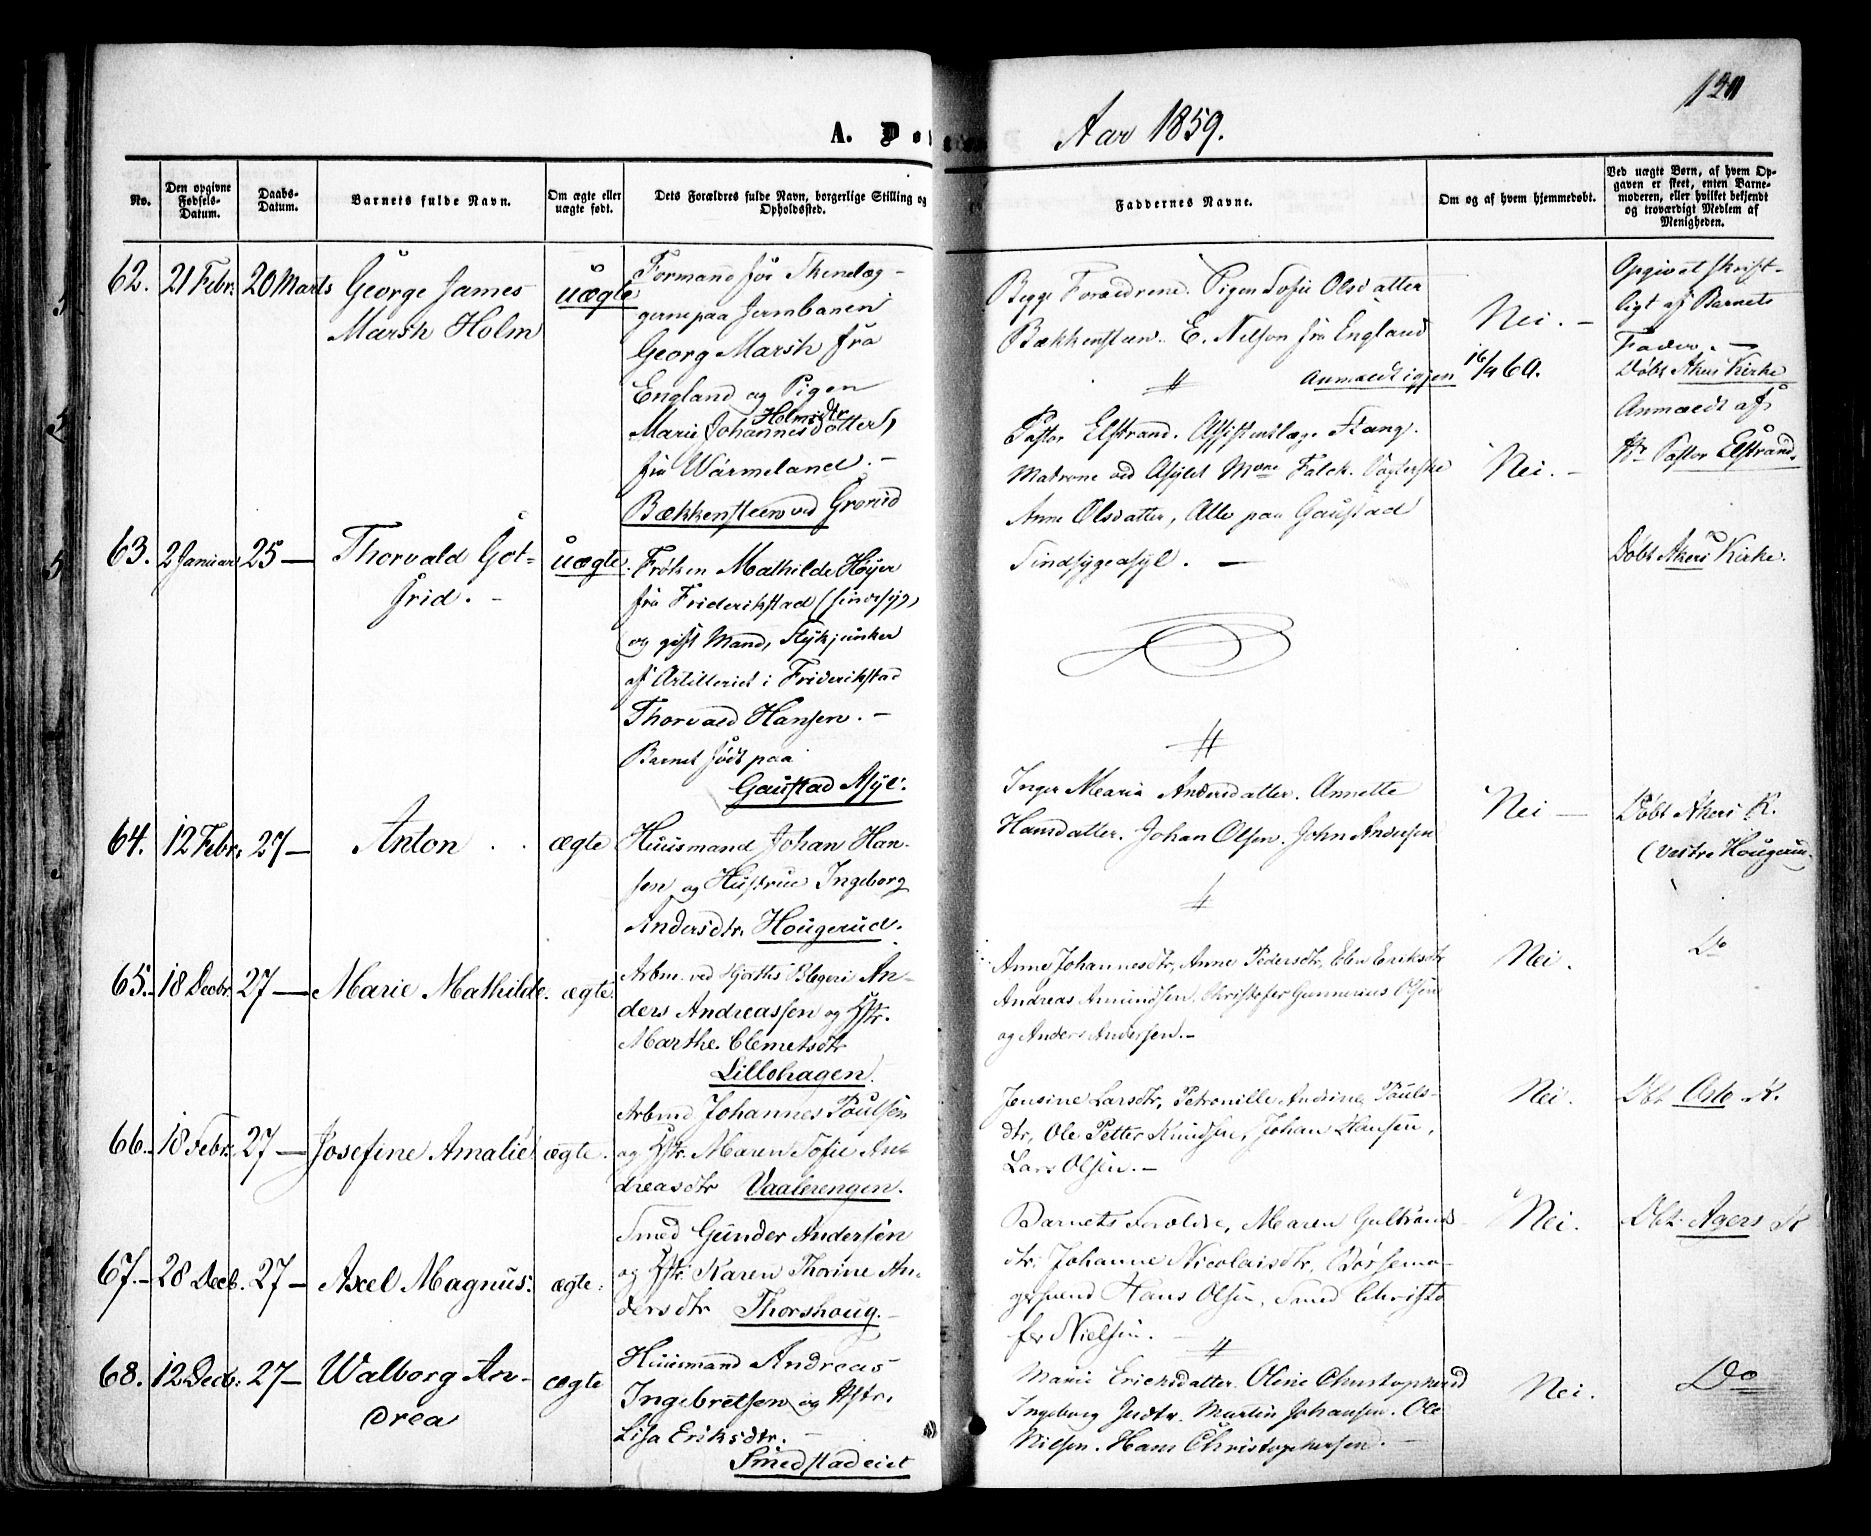 A. Dø
Aar 1859.
No.
Den opgivne
Fødsels-
Datum.
Daabs-
Datum.
Barnets fulde Navn.
Om ægte eller
uægte født.
Dets Forældres fulde Navn, borgerlige Stilling og
Opholdssted.
Faddernes Navne.
Om og af hvem hjemmedøbt.
Ved uægte Børn, af hvem Op-
gaven er skeet, enten Barne-
moderen, eller hvilket bekjendt
og troværdigt Medlem af
Menigheden.
62. 21 Febr. 20 Marts George James
Marsh Holm
uægte
Formand for Skinelæg-
gerne paa Jernbanen
Georg Marsh fra
England og Pigen
Holmsdtr
Marie Johannesdotter,
fra Wärmeland. -
Bækkensteen ved Grorud
Begge Forældrene. Pigen Sofie Olsdatter
Bækkensteen. E. Nelson fra England
Anmældt igjen 16/4 60.
Nei. -
Opgivet skrift-
ligt af Barnets
Fader. -
Døbt Akers Kirke
63. 2 Januar 25 - Thorvald Got-
frid. -
uægte.
Frøken Mathilde Høyer
fra Friderikstad (sindssyg,
og gift Mand, Stykjunker
af Artilleriet i Friderikstad
Thorvald Hansen. -
Barnet født paa
Gaustad Asyl.
Pastor Elstrand. Assistentslæge Stang.
Matrone ved Asylet Mme Falck. Vogterske
Anne Olsdatter, Alle paa Gaustad
Sindsygeasyl. -
Nei. -
Anmældt af
Hr Pastor Elstrand.
Døbt Akers Kirke.
64. 12 Febr. 27 - Anton
ægte
Huusmand Johan Han-
sen og Hustrue Ingeborg
Andersdtr. Hougerud.
Inger Maria Andersdatter. Annette
Hansdatter. Johan Olsen. John Andersen
Nei -
Døbt Akers K.
(Vestre Hougerud
65. 18 Decbr. 27 - Marie Mathilde.
ægte
Arbm. ved Hjorths Blegeri An-
ders Andreassen og Hstr.
Marthe Clemetsdtr
Lillohagen.
Anne Johannesdtr, Anne Pedersdtr, Elen Eriksdtr
Andreas Amundsen, Christofer Gunnerius Olsen
og Anders Andersen. -
Nei.
Do
66. 18 Febr. 27 - Josefine Amalie
ægte.
Arbmd Johannes Poulsen
og Hstr. Maren Sofie An-
dreasdtr Vaalerengen.
Jensine Larsdtr, Petronille Andrine Pauls-
dtr, Ole Petter Knudsen, Johan Hansen,
Lars Olsen. -
Nei.
Dbt Oslo K.
67. - 28 Decb. 27 - Axel Magnus.
ægte.
Smed Gunder Andersen
og Hstr. Karen Thorine An-
dersdtr Thorshoug. -
Barnets Forældre, Maren Gulbrands-
dtr, Johanne Nicolaisdtr, Børsema-
gersvend Hans Olsen, Smed Christo
fer Nielsen. -
Nei.
Dbt. Agers K
68. 12 Decb. 27 - Walborg An-
drea
ægte
Huusmand Andreas
Ingebretsen og Hstr.
Lisa Eriksdtr. -
Smedstadeiet
Marie Ericksdatter. Oline Christophersd
Ingeborg Martin Johansen. Ole
Nielsen. Hans Christophersen. -
Nei.
Do